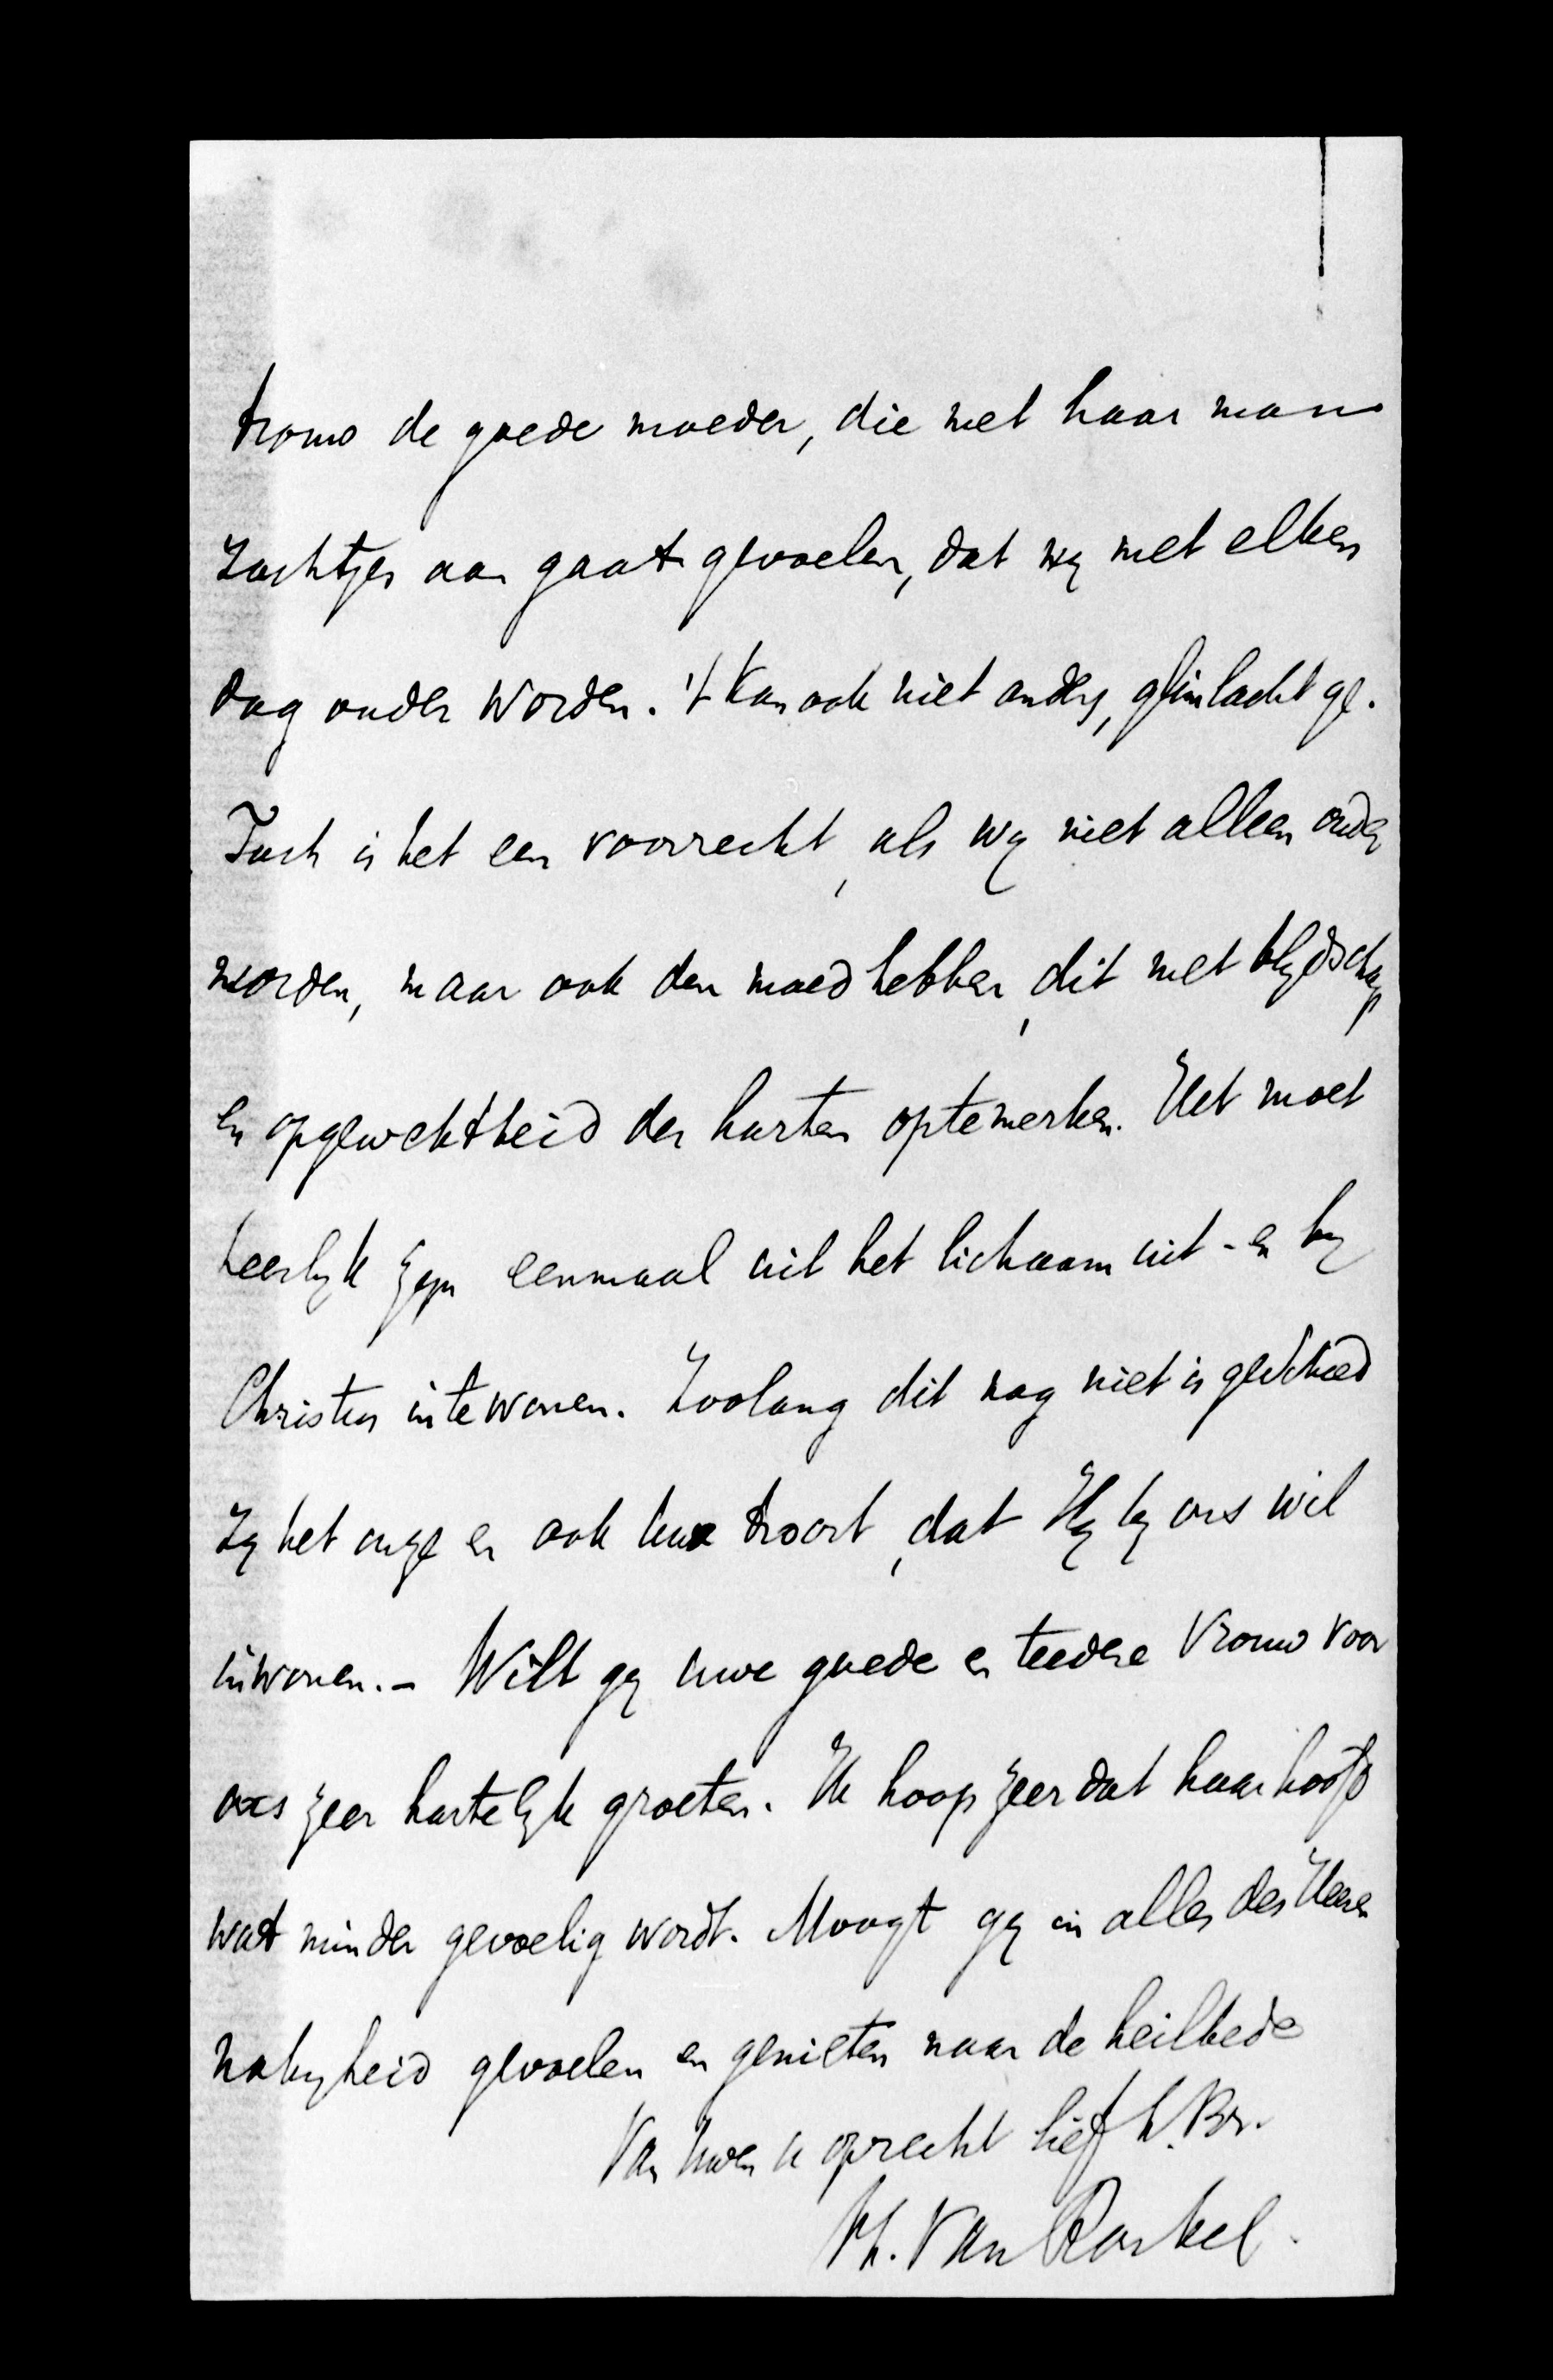 trouw de goede moeder, die met haar man
zachtjes aan gaat gevoelen, dat wij met elken
dag ouder worden. 't Kan ook niet anders, glimlacht ge.
Toch is het een voorrecht, als wij niet alleen ouder
worden, maar ook den moed hebben, dit met blijdschap
en opgewektheid des harten optemerken. Het moet
heerlijk zijn eenmaal uit het lichaam uit - en bij
Christus intewonen. Zoolang dit nog niet is geschied
zij het onze en ook uwe troost, dat Hij bij ons wil
inwonen. - Wilt gij uwe goede en teedere Vrouw voor
ons zeer hartelijk groeten. Ik hoop zeer dat haar hoofd
wat minder gevoelig wordt. Moogt gij in alles des Heeren
nabijheid gevoelen en genieten naar de heilbede
Van Uwen u oprecht liefh. Br.
Ph. Van Ronkel.